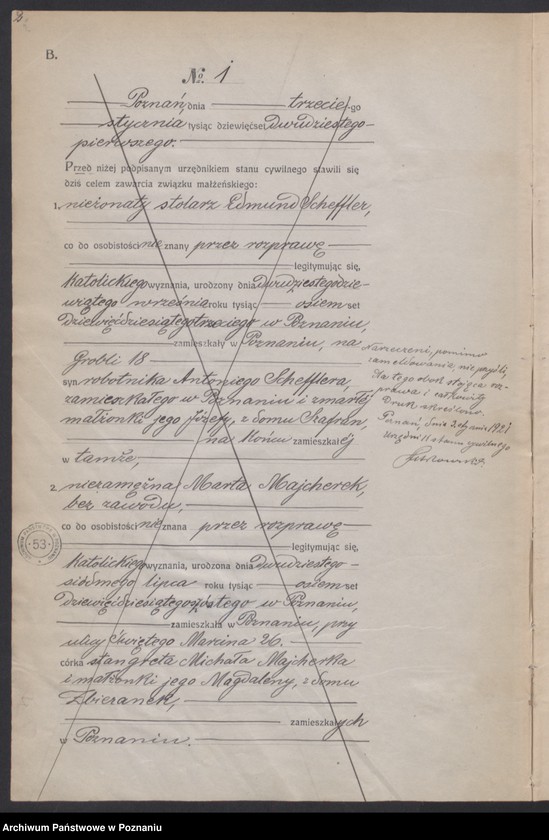 B.
No. 1
Poznań, dnia trzeciego
stycznia tysiąc dziewięćset dwudziestego
pierwszego.
Przed niżej podpisanym urzędnikiem stanu cywilnego stawili się
dziś celem zawarcia związku małżeńskiego:
1. nieżonaty stolarz Edmund Scheffler,
co do osobistości nie znany przez rozprawę
legitymując się,
Katolickiego wyznania, urodzony dnia dwudziestego dzie-
wiątego września roku tysiąc osiemset
dziewięćdziesiątego trzeciego w Poznaniu,
zamieszkały w Poznaniu, na
Grobli 18
syn robotnika Antoniego Schefflera,
zamieszkałego w Poznaniu i zmarłej
małżonki jego Józefy, z domu Szafran,
na końcu zamieszkałej
w tamże,
2. niezamężna Marta Majcherek,
bez zawodu,
co do osobistości nie znana przez rozprawę
legitymując się,
Katolickiego wyznania, urodzona dnia dwudziestego
siódmego lipca roku tysiąc osiemset
dziewięćdziesiątego szóstego w Poznaniu,
zamieszkała w Poznaniu, przy
ulicy świętego Marcina 26.
córka stangreta Michała Majcherka
i małżonki jego Magdaleny, z domu
Zbieranek,
zamieszkałych
w Poznaniu.
Narzeczeni, pomimo
zameldowania, nie przyszli,
dla tego obok stojąca roz-
prawa i całkowity
Druk skreślono.
Poznań, dnia 3 stycznia 1921
Urzędnik stanu cywilnego
53
Archiwum Państwowe w Poznaniu